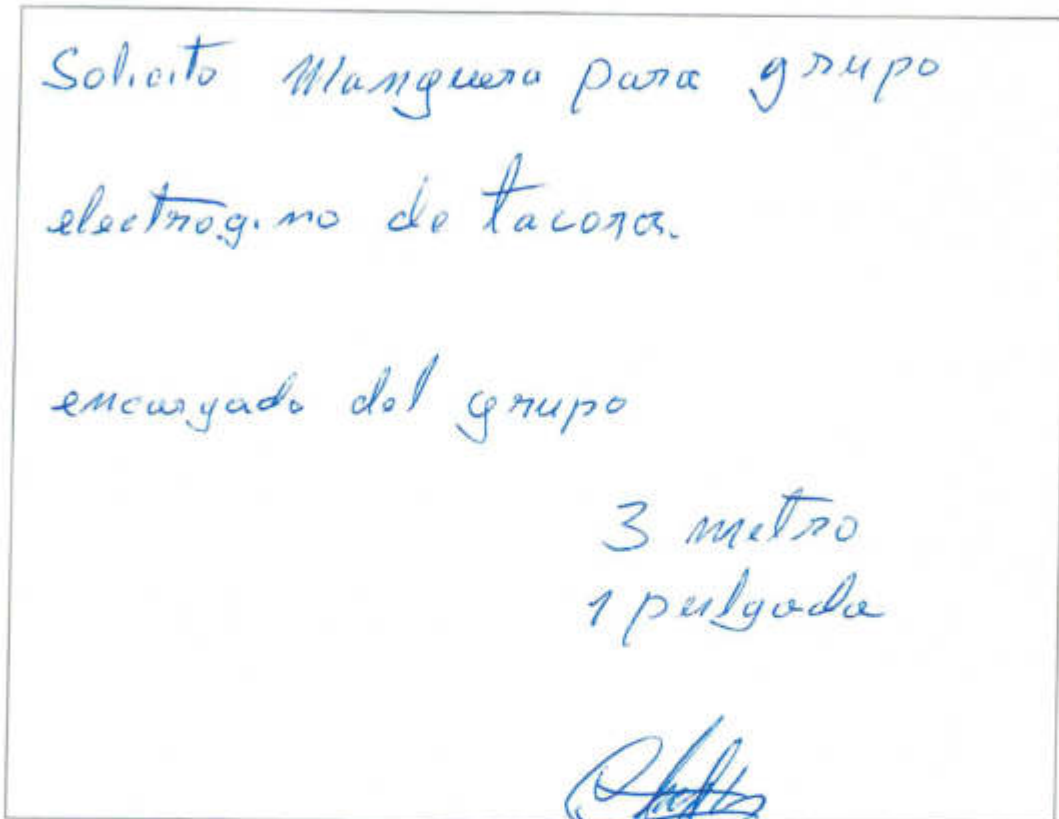 Solicito Manguera para grupo
electrog.no de tacora.
encargado del grupo
3 metro
1 pulgada